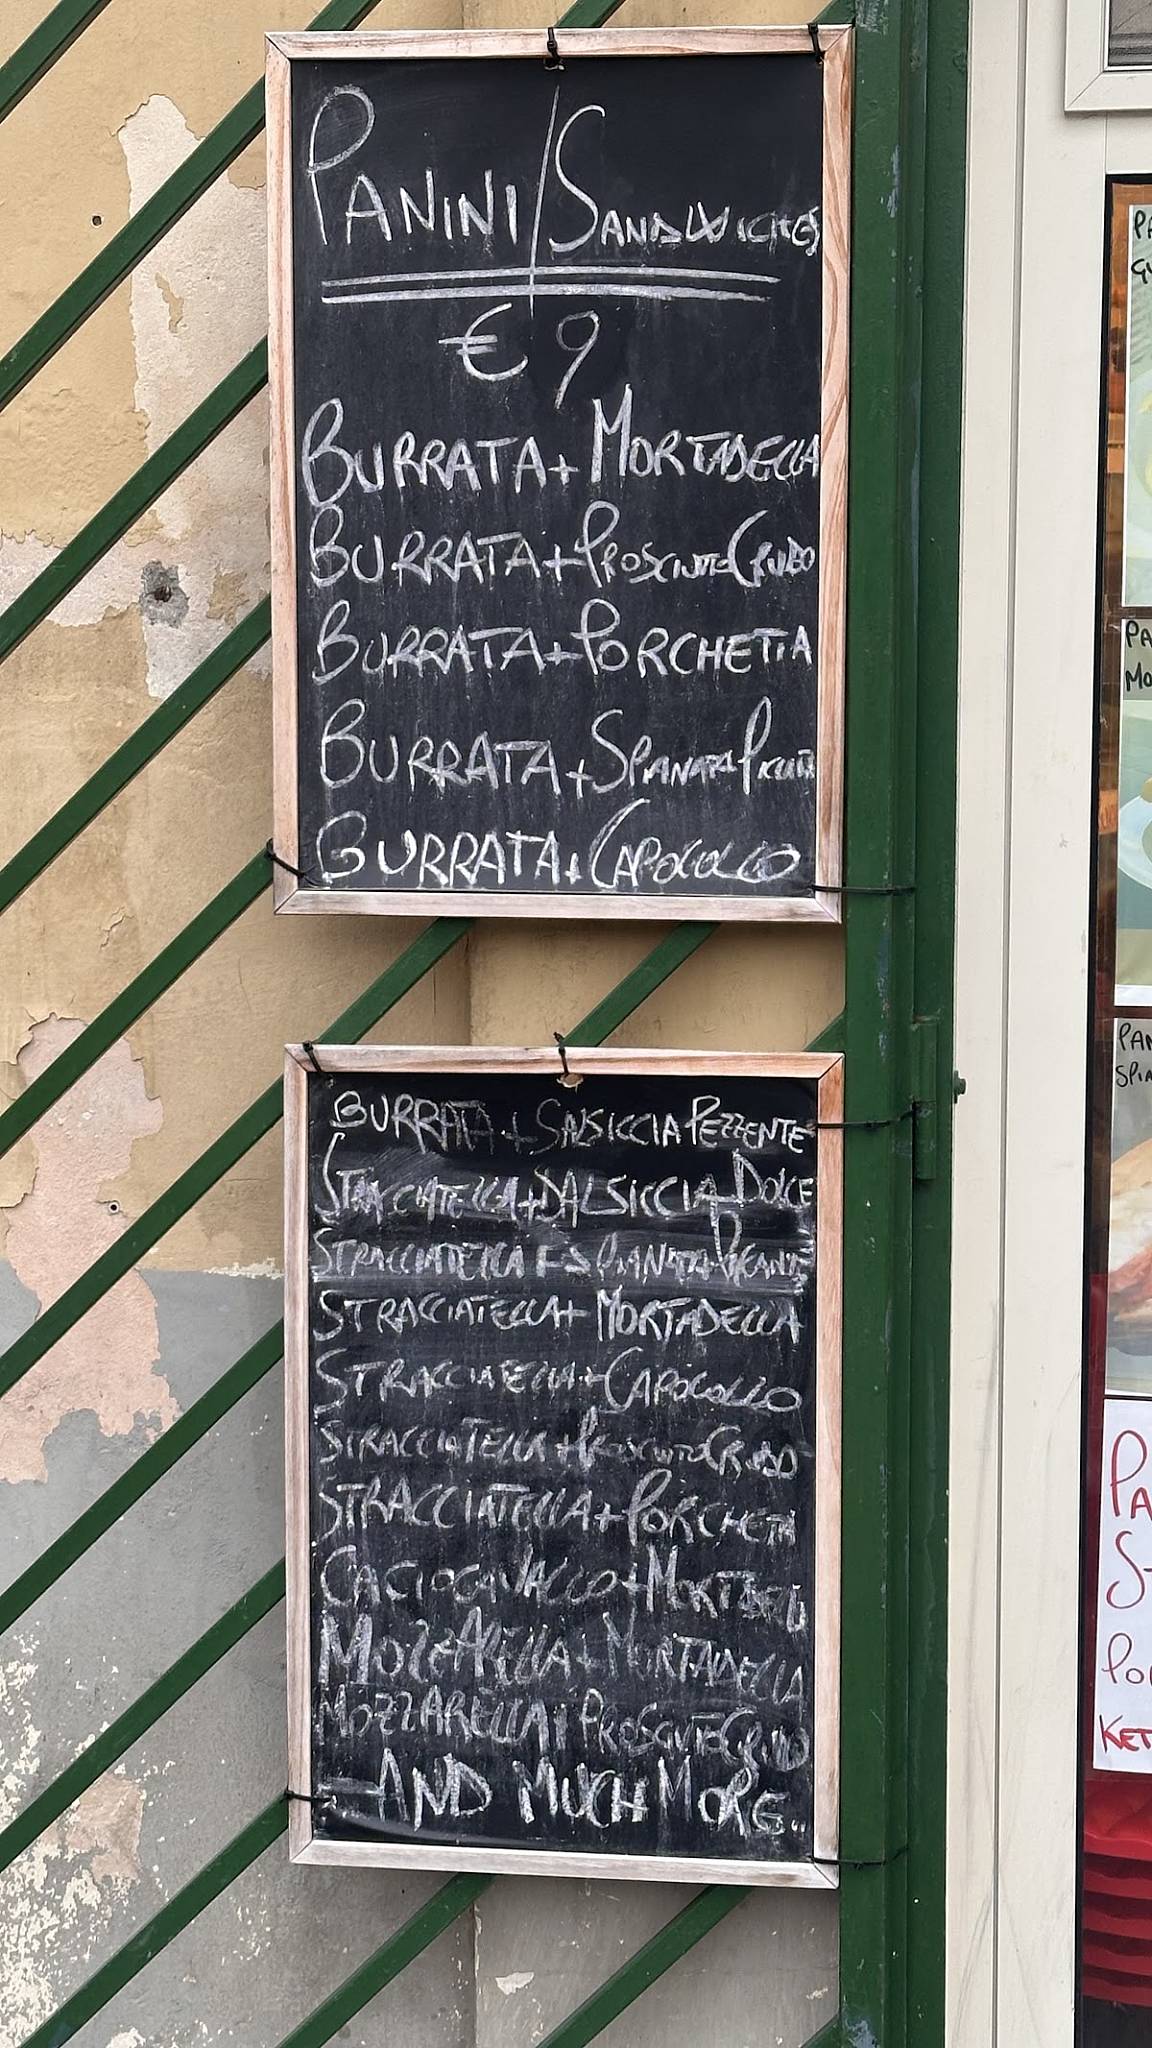 PANINI/SANDWICHES
€ 9
BURRATA+MORTADELLA
BURRATA+PROSCIUTTO CRUDO
BURRATA+PORCHETTA
BURRATA+SPIANATA PICCANTE
BURRATA+CAPOCOLLO
BURRATA+SALSICCIA PEZZENTE
STRACCIATELLA+SALSICCIA DOLCE
STRACCIATELLA+SPIANATA PICANTE
STRACCIATELLA+MORTADELLA
STRACCIATELLA+CAPOCOLLO
STRACCIATELLA+PROSCIUTTO CRUDO
STRACCIATELLA+PORCHETTA
CACIOCAVALLO+MORTADELLA
MOZZARELLA+MORTADELLA
MOZZARELLA+PROSCIUTTO CRUDO
AND MUCH MORE..